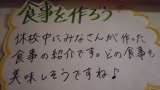 食事を作ろう
休校中にみなさんが作った
食事の紹介です。どの食事も
美味しそうですね♪